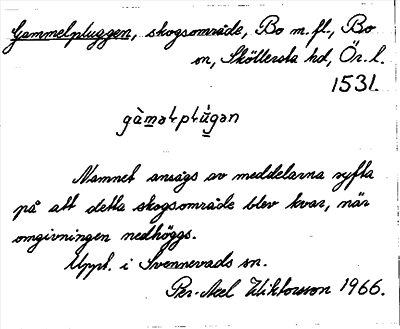 Gammelpluggen, skogsområde, Bo m.fl., Bo
sn, Sköllersta hd, Ör. l.
1531.
gàməlplúgən
Namnet ansågs av meddelarna syfta
på att detta skogsområde blev kvar, när
omgivningen nedhöggs.
Uppt. i Svennevads sn.
Per-Axel Wiktorsson 1966.